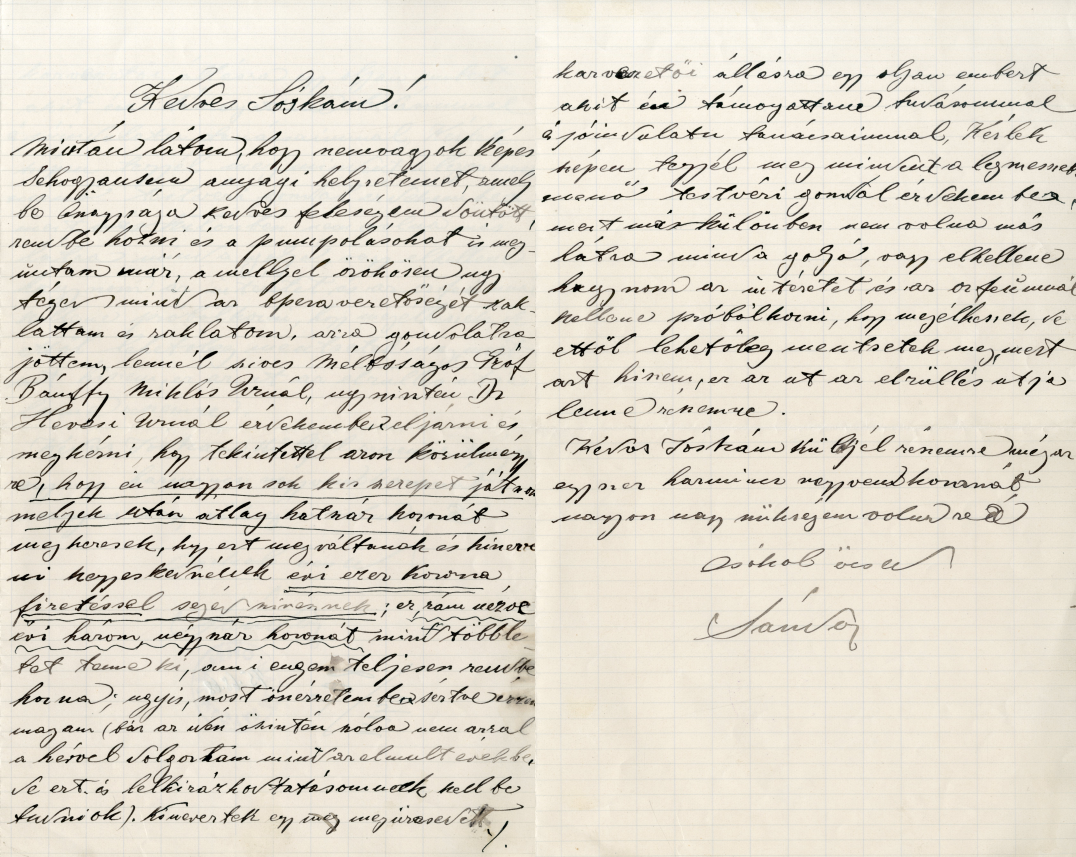 Kedves Jóskám!
Miután látom, hogy nem vagyok képes
sehogysem anyagi helyzetemet, amely
be őnagysága kedves feleségem döntött,
rendbe hozni és a pumpolásokat is meg-
untam már, a mellyel örökösen ugy
téged mint az opera vezetőségét zak-
lattam és zaklatom, arra gondolatra
jöttem, lennél szives Méltóságos Gróf
Bánffy Miklós Urnál, ugyszintén Dr
Hevesi Urnál érdekembe eljárni és
megkérni, hogy tekintettel azon körülmény
re, hogy én nagyon sok kis szerepet játszom
melyek után átlag hatszáz koronát
megkeresek, hogy ezt megváltanák és kinevez
ni kegyeskednének évi ezer korona
fizetéssel segéd szinésznek; ez, rám nézve
évi három, négyszáz koronát mint többle-
tet tenne ki, ami engem teljesen rendbe
hozna; ugyis, most önérzetembe sértve érzem
magam (bár az idén őszintén szólva nem azzal
a kézzel dolgoztam mint az elmult években,
de ezt és lelkirázkódtatásomnak kell be
tudniok). Kineveztek egy meg megüresedett
karvezetői állásra egy oljan embert
akit én támogattam tudásommal
s jóindulatu tanácsaimmal, Kérlek
szépen tegyjél meg mindent a legmesszeb
menő testvéri gonddal érdekembe,
mert máskülönben nem volna más
hátra mind a golyó, vagy elkellene
hagynom az intézetet és az orfeumnál
kellene próbálkozni, hogy megélhessek, de
ettől lehetőleg mentsetek meg, mert
azt hiszem, ez az ut az elzüllés utja
lenne részemre.
Kedves Jóskám küldjél részemre még az
egyszer harmincz negyven koronát
nagyon nagy szükségem volna reá
Csókol öcséd
Sándor